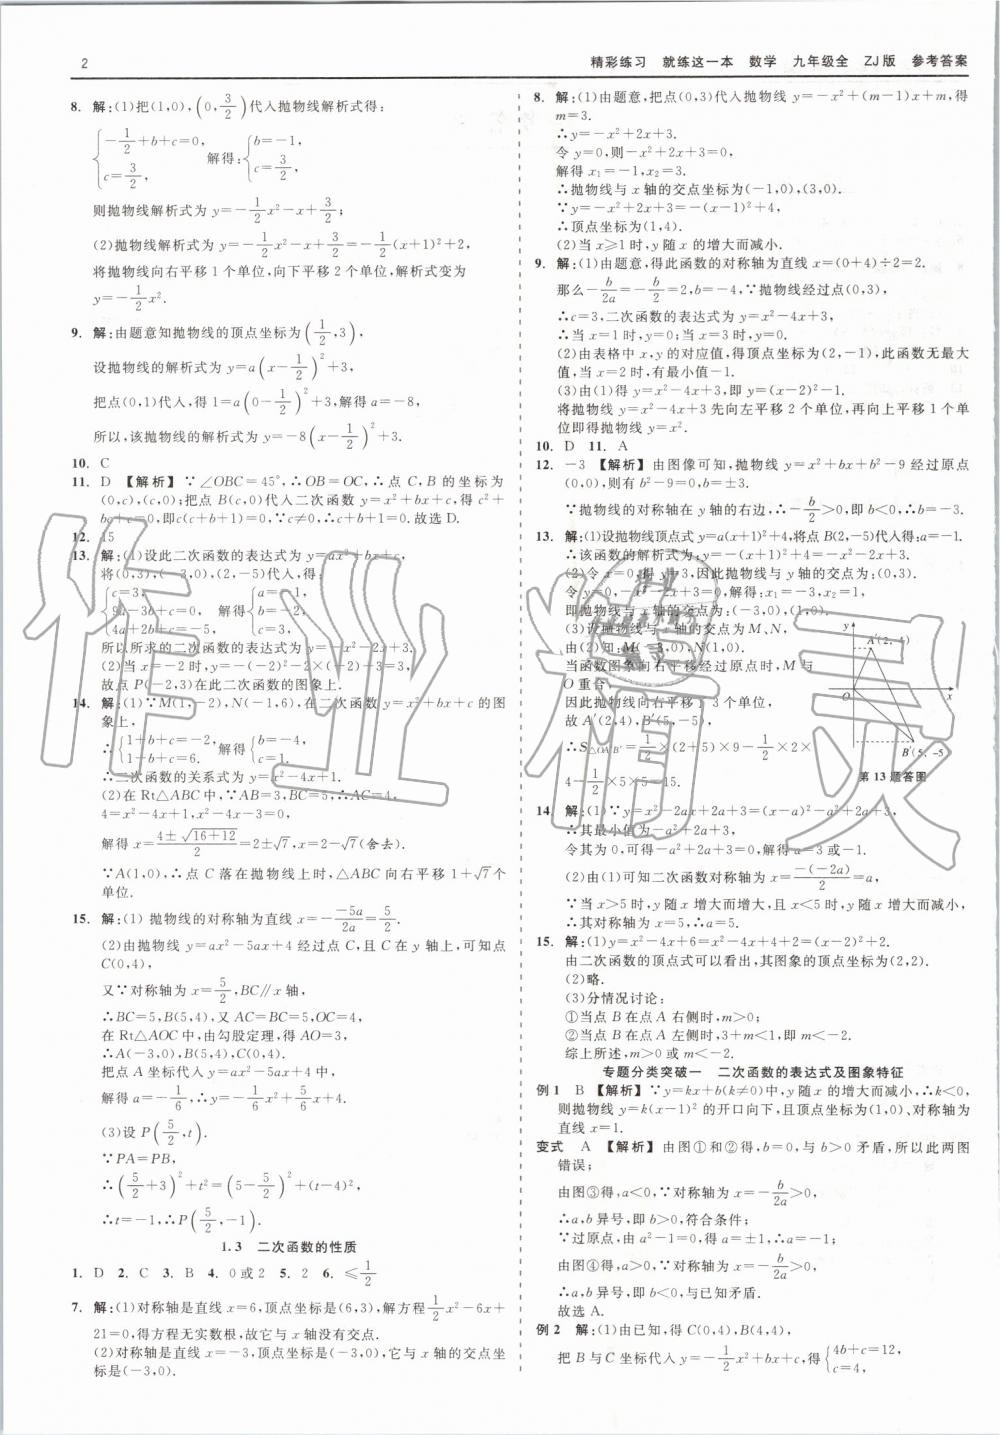 2
精彩练习 就练这一本 数学 九年级全 ZJ版 参考答案
8. 解:(1)把(1,0),(0,3/2)代入抛物线解析式得:
{-1/2+b+c=0, c=3/2, 解得:{b=-1, c=3/2,
则抛物线解析式为 y=-1/2x²-x+3/2;
(2)抛物线解析式为 y=-1/2x²-x+3/2=-1/2(x+1)²+2,
将抛物线向右平移1个单位,向下平移2个单位,解析式变为
y=-1/2x².
9. 解:由题意知抛物线的顶点坐标为(1/2,3),
设抛物线的解析式为 y=a(x-1/2)²+3,
把点(0,1)代入,得1=a(0-1/2)²+3,解得a=-8,
所以,该抛物线的解析式为 y=-8(x-1/2)²+3.
10. C
11. D 【解析】∵∠OBC=45°,∴OB=OC,∴点C,B的坐标为
(0,c),(c,0);把点B(c,0)代入二次函数y=x²+bx+c,得c²+
bc+c=0,即c(c+b+1)=0,∵c≠0,∴c+b+1=0.故选D.
12. 15
13. 解:(1)设此二次函数的表达式为 y=ax²+bx+c,
将(0,3),(-3,0),(2,-5)代入,得
{c=3, 9a-3b+c=0, 4a+2b+c=-5, 解得{a=-1, b=-2, c=3,
所以所求的二次函数的表达式为 y=-x²-2x+3.
(2)当x=-2时,y=-(-2)²-2×(-2)+3=3,
故点P(-2,3)在此二次函数的图象上.
14. 解:(1)∵M(1,-2),N(-1,6),在二次函数y=x²+bx+c的图
象上,
∴{1+b+c=-2, 1-b+c=6. 解得{b=-4, c=1.
∴二次函数的关系式为 y=x²-4x+1.
(2)在Rt△ABC中,∵AB=3,BC=5,∴AC=4,
4=x²-4x+1,x²-4x-3=0,
解得x=(4±√(16+12))/2=2±√7,x=2-√7(舍去).
∵A(1,0),∴点C落在抛物线上时,△ABC向右平移1+√7个
单位.
15. 解:(1) 抛物线的对称轴为直线x=-(-5a)/(2a)=5/2.
(2)由抛物线 y=ax²-5ax+4 经过点C,且C在y轴上,可知点
C(0,4),
又∵对称轴为x=5/2,BC∥x轴,
∴BC=5,B(5,4),又AC=BC=5,OC=4,
在Rt△AOC中,由勾股定理,得AO=3,
∴A(-3,0),B(5,4),C(0,4).
把点A坐标代入y=ax²-5ax+4中,
解得a=-1/6,∴y=-1/6x²+5/6x+4.
(3)设P(5/2,t).
∵PA=PB,
∴(5/2+3)²+t²=(5-5/2)²+(4-t)²,
∴t=-1,∴P(5/2,-1).
1.3 二次函数的性质
1. D 2. C 3. B 4. 0或2 5. 2 6. ≤1/2
7. 解:(1)对称轴是直线x=6,顶点坐标是(6,3),解方程1/2x²-6x+
21=0,得方程无实数根,故它与x轴没有交点.
(2)对称轴是直线x=-3,顶点坐标是(-3,0),它与x轴的交点坐
标是(-3,0).
8. 解:(1)由题意,把点(0,3)代入抛物线 y=-x²+(m-1)x+m,得
m=3.
∴y=-x²+2x+3.
令y=0,则-x²+2x+3=0.
解得x₁=-1,x₂=3.
∴抛物线与x轴的交点坐标为(-1,0),(3,0).
∵y=-x²+2x+3=-(x-1)²+4,
∴顶点坐标为(1,4).
(2)当x≥1时,y随x的增大而减小.
9. 解:(1)由题意,得此函数的对称轴为直线x=(0+4)÷2=2.
那么-b/2a=-b/2=2,b=-4,∵抛物线经过点(0,3),
∴c=3,二次函数的表达式为 y=x²-4x+3,
∴当x=1时,y=0;当x=3时,y=0.
(2)由表格中x,y的对应值,得顶点坐标为(2,-1),此函数无最大
值,当x=2时,y最小值为-1.
(3)由(1)得y=x²-4x+3,即y=(x-2)²-1.
将抛物线y=x²-4x+3先向左平移2个单位,再向上平移1个单
位即得抛物线y=x².
10. D 11. A
12. -3 【解析】由图像可知,抛物线y=x²+bx+b²-9经过原点
(0,0),则有b²-9=0,b=±3.
∵抛物线的对称轴在y轴的右边,∴-b/2>0,即b<0,∴b=-3.
13. 解:(1)设抛物线顶点式y=a(x+1)²+4,将点B(2,-5)代入得:a=-1.
∴该函数的解析式为 y=-(x+1)²+4=-x²-2x+3.
(2)令x=0,得y=3,因此抛物线与y轴的交点为:(0,3).
令y=0,-x²-2x+3=0,解得:x₁=-3,x₂=1,
即抛物线与x轴的交点为:(-3,0),(1,0).
(3)设抛物线与x轴的交点为M、N,
由(2)知:M(-3,0),N(1,0).
当函数图象向右平移经过原点时,M与
O重合,
因此抛物线向右平移了3个单位,
故A′(2,4),B′(5,-5),
∴S△OA′B′=1/2×(2+5)×9-1/2×2×
4-1/2×5×5=15.
y
A′(2,4)
O
x
B′(5,-5)
第13题答图
14. 解:(1)∵y=x²-2ax+2a+3=(x-a)²-a²+2a+3,
∴其最小值为-a²+2a+3,
令其为0,可得-a²+2a+3=0,解得a=3或-1.
(2)由(1)可知二次函数对称轴为x=-(-2a)/2=a,
∵当x>5时,y随x增大而增大,且x<5时,y随x增大而减小,
∴其对称轴为x=5,∴a=5.
15. 解:(1)y=x²-4x+6=x²-4x+4+2=(x-2)²+2.
由二次函数的顶点式可以看出,其图象的顶点坐标为(2,2).
(2)略.
(3)分情况讨论:
①当点B在点A右侧时,m>0;
②当点B在点A左侧时,3+m<1,即m<-2.
综上所述,m>0或m<-2.
专题分类突破一 二次函数的表达式及图象特征
例1 B 【解析】∵y=kx+b(k≠0)中,y随x的增大而减小,∴k<0,
则抛物线y=k(x-1)²的开口向下,且顶点为(1,0)、对称轴为
直线x=1.
变式 A 【解析】由图①和②得,b=0,与b>0矛盾,所以此两图
错误;
由图③得,a<0,∵对称轴为x=-b/2a>0,
∴a,b异号,即b>0,符合条件;
∵过原点,由a²-1=0,得a=±1,∴a=-1;
由图④得,a>0,∵对称轴为x=-b/2a>0,
∴a,b异号,即b<0,与已知矛盾.
故选A.
例2 解:(1)由已知,得C(0,4),B(4,4),
把B与C坐标代入y=-1/2x²+bx+c,得{4b+c=12, c=4,
作业精灵